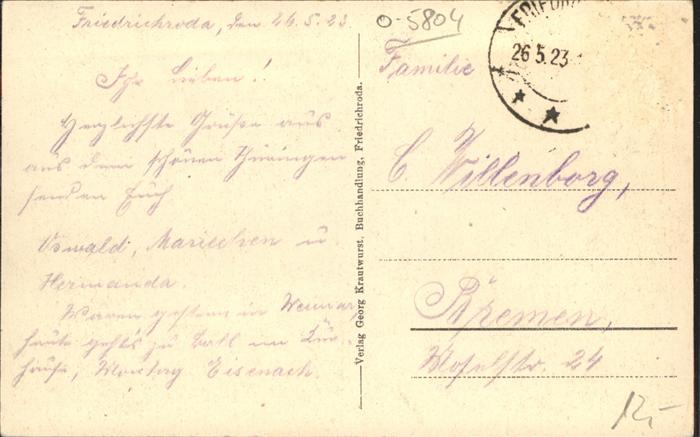 Friedrichroda, den 26.5.23.
Ihr Lieben!
Herzlichste Grüße aus
aus dem schönen Thüringen
senden Euch
Oswald, Mariechen u.
Hermanda.
Waren gestern in Weimar,
heute geht's zu Ball im Kur-
hause, Montag Eisenach.
Verlag Georg Krautwurst, Buchhandlung, Friedrichroda.
O-5804
FRIEDR
26.5.23
Familie
C. Willenborg,
Bremen,
Moselstr. 24
12,-